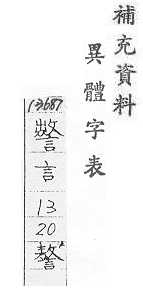 補充資料
異體字表
13687
言
13
20